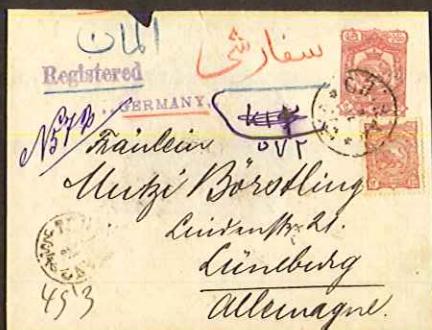 المان
سفارشی
Registered
GERMANY.
№572
۵۷۲
Fräulein
Börstling
Lindenstr. 21.
Lüneburg
Allemagne.